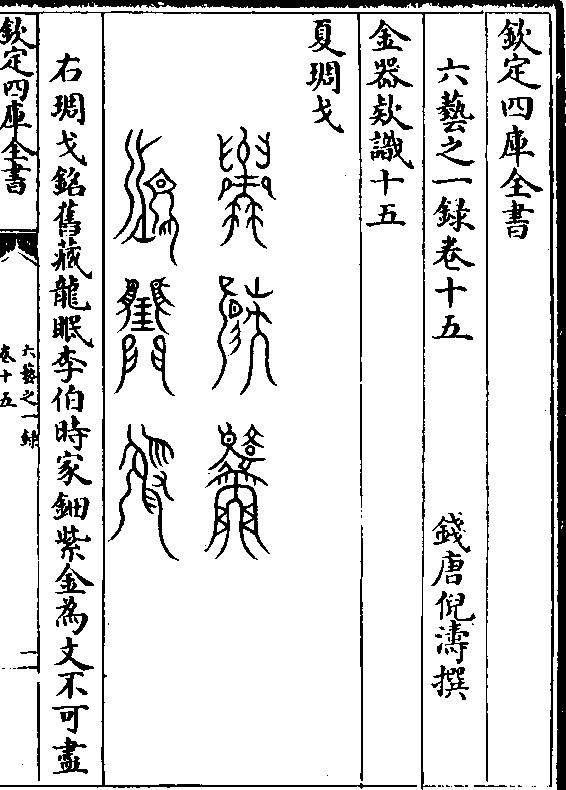 欽定四庫全書
六藝之一録卷十五
錢唐倪濤撰
金器欵識十五
夏琱戈
右琱戈銘舊藏龍眠李伯時家鈿紫金為文不可盡
欽定四庫全書
六藝之一録
卷十五
二